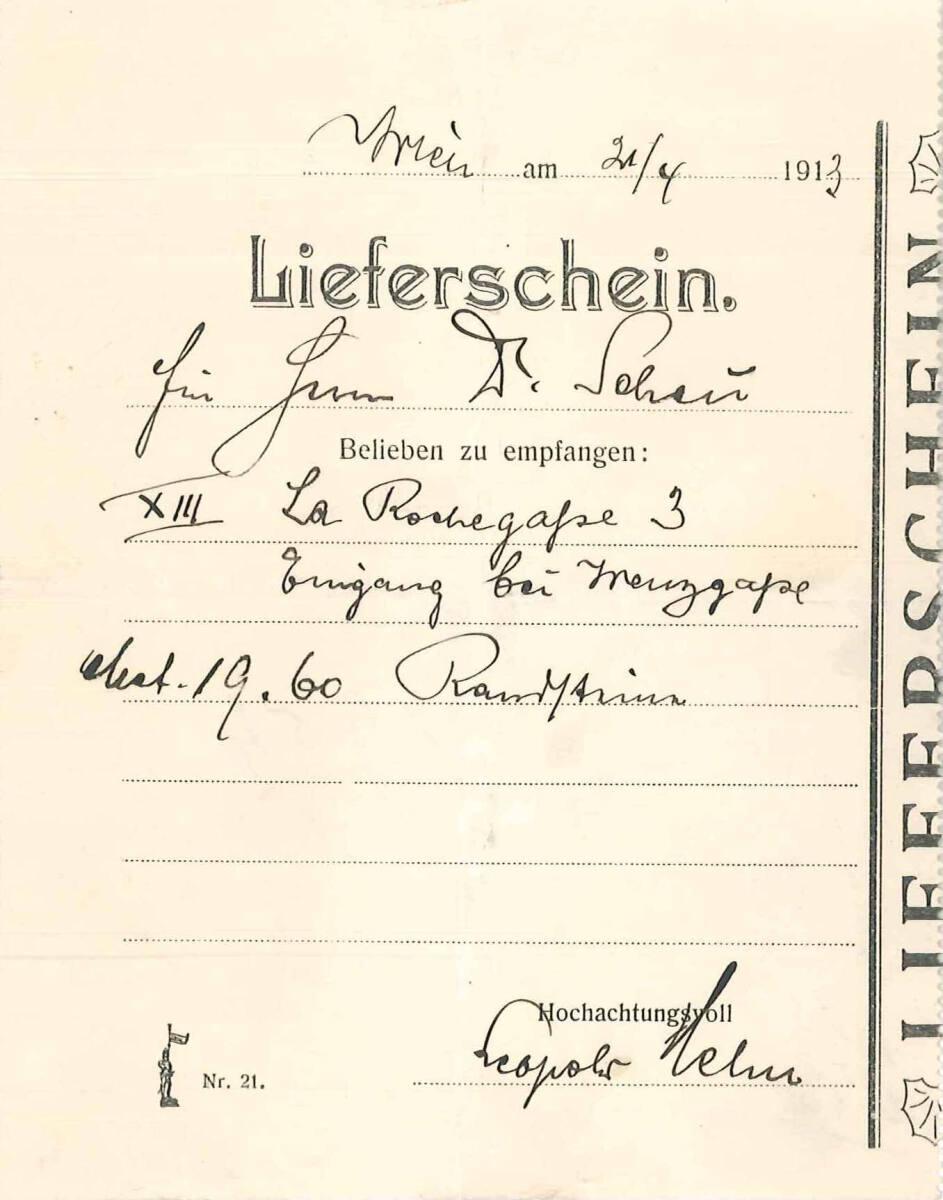 Wien am 21/4 1913
Lieferschein.
für Herrn Dr. Scheu
Belieben zu empfangen:
XIII La Rochegaße 3
Eingang bei Wenzgaße
19.60 Randsteine
Hochachtungsvoll
Leopold Helm
Nr. 21.
LIEFERSCHEIN